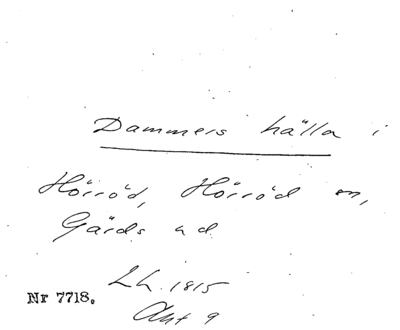 Dammers hälla i
Hörröd, Hörröd sn,
Gärds hd
Lh. 1815
Nr 7718.
Akt 9